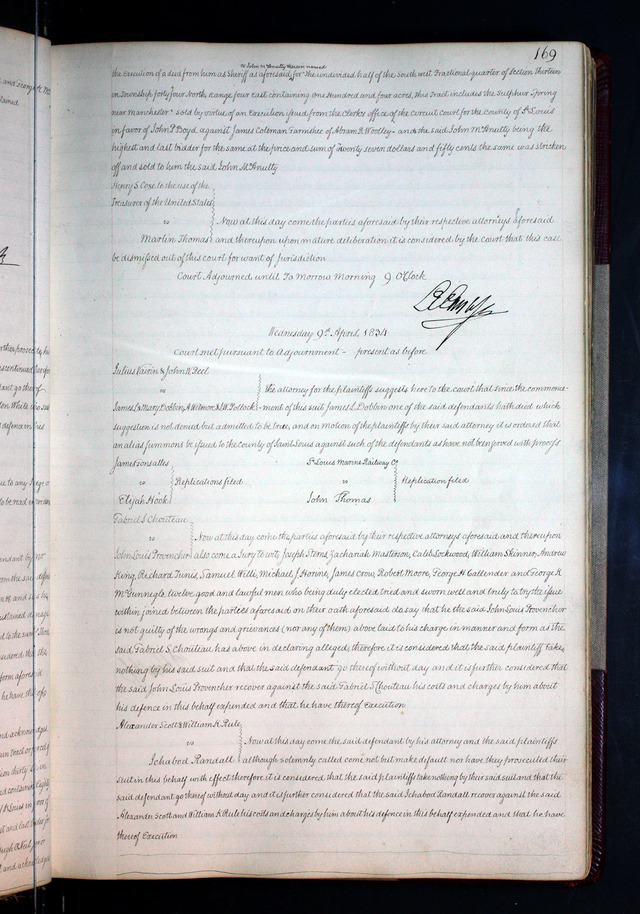 169
to John McAnulty therein named
the Execution of a deed from him as Sheriff as aforesaid for the undivided half of the South west Fractional quarter of Section Thirteen
in Township forty four North Range four east containing One Hundred and four acres, this Tract includes the Sulphur Spring
near Manchester - sold by virtue of an Execution issued from the Clerks office of the Circuit Court for the County of St Louis
in favor of John P Boyd against James Coleman Garnishee of Abram R Woolley - and the said John McAnulty being the
highest and last bidder for the same at the price and sum of Twenty seven dollars and fifty cents the same was stricken
off and sold to him the said John McAnulty
Henry S Coxe to the use of the
Treasurer of the United States
vs
Now at this day come the parties aforesaid by their respective attorneys aforesaid
Martin Thomas and thereupon upon mature deliberation it is considered by the court that this case
be dismissed out of this court for want of Jurisdiction
Court Adjourned until To Morrow Morning 9 O'Clock
Wednesday 9th April, 1834
Court met pursuant to Adjournment - present as before
Julius Vairin & John R Reel
vs
the attorney for the plaintiffs suggests here to the court that since the commence
James L & Mary Dobbin, A Wilmore & J W Pollock -ment of this suit James L Dobbin one of the said defendants hath died which
suggestion is not denied but admitted to be true, and on motion of the plaintiffs by their said attorney it is ordered that
an alias summons be issued to the County of Saint Louis against such of the defendants as have not been served with process
James Fonsalles
vs
Replications filed
Elijah Hook
St Louis Marine Railway Co
vs
Replication filed
John Thomas
Gabriel S Chouteau
vs
Now at this day come the parties aforesaid by their respective attorneys aforesaid and thereupon
John Louis Provencher also come a Jury to wit, Joseph Sterns, Zachariah Masterson, Caleb Lockwood, William Skinner, Andrew
King, Richard Tunis, Samuel Willi, Michael J Horine, James Crow, Robert Moore, George H Callender and George K
McGunnegle twelve good and lawful men who being duly elected tried and sworn well and truly to try the issue
within joined between the parties aforesaid on their oath aforesaid do say that he the said John Louis Provencher
is not guilty of the wrongs and grievances (nor any of them) above laid to his charge in manner and form as the
said Gabriel S. Chouteau has above in declaring alleged; therefore it is considered that the said plaintiff take
nothing by his said suit and that the said defendant go thereof without day and it is further considered that
the said John Louis Provencher recover against the said Gabriel S Chouteau his costs and charges by him about
his defence in this behalf expended and that he have thereof Execution
Alexander Scott & William K Rule
vs
Now at this day come the said defendant by his attorney and the said plaintiffs
Ichabod Randall although solemnly called come not but make default nor have they prosecuted their
suit in this behalf with effect therefore it is considered that the said plaintiffs take nothing by their said suit and that the
said defendant go thereof without day and it is further considered that the said Ichabod Randall recover against the said
Alexander Scott and William K Rule his costs and charges by him about his defence in this behalf expended and that he have
thereof Execution